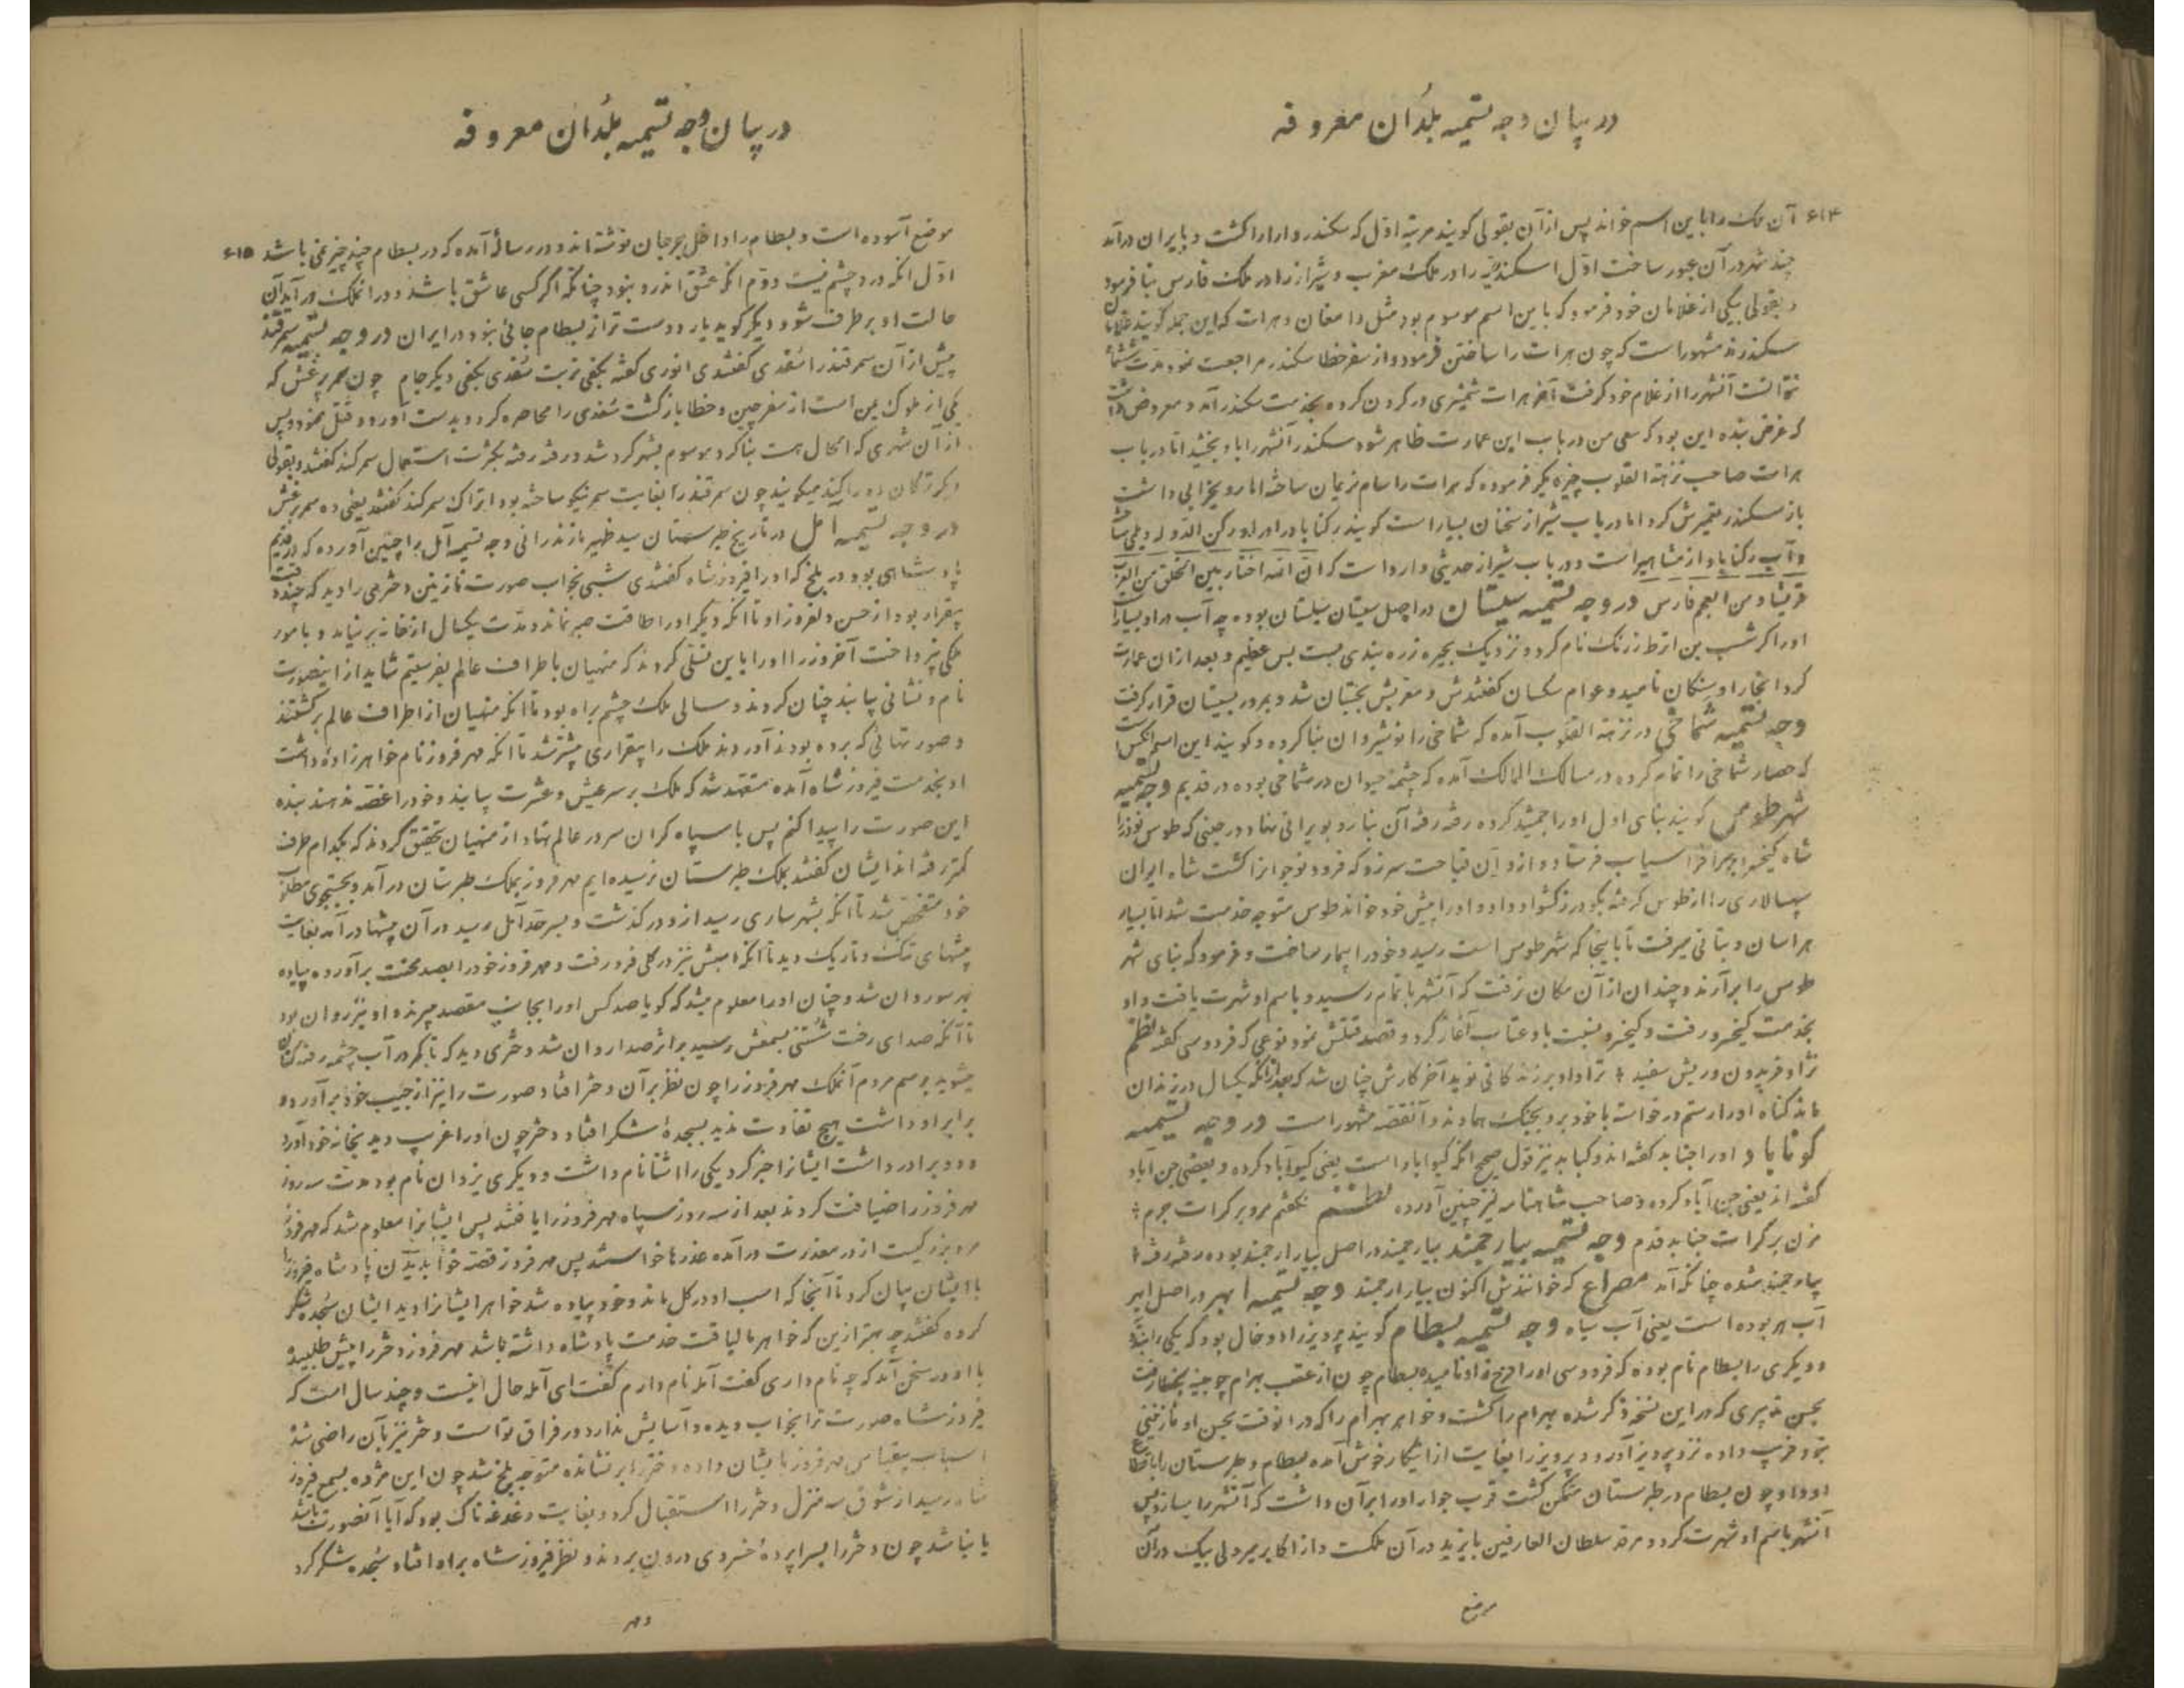 در بیان وجه تسمیه بلدان معروفه
۶۱۴
آن ملک را باین اسم خواند پس از آن بقولی گویند مرتبه اول که سکندر دارا را کشت و بایران درآمد
چند شهر در آن عبور ساخت اول اسکندریه را در ملک مغرب و شیراز را در ملک فارس بنا فرمود
و بقولی بیکی از غلامان خود فرمود که باین اسم موسوم بود مثل دامغان و هرات که این جمله گویند غلامان
سکندرند مشهور است که چون هرات را ساختن فرمود و از سفر خطا سکندر مراجعت نمود مدت
نتوانست آنشهر را از غلام خود گرفت آخر هرات شمشیری در گردن کرده بخدمت سکندر آمد و معروض داشت
که غرض بنده این بود که سعی من در باب این عمارت ظاهر شود سکندر آنشهر را باو بخشید اما در باب
هرات صاحب نزهة القلوب چیز دیگر فرموده که هرات را سام نریمان ساخته اما رو بخرابی داشت
باز سکندر تعمیرش کرد اما در باب شیراز سخنان بسیار است گویند رکناباد را او رکن الدوله دیلمی ساخت
و آب رکناباد از مشاهیر است و در باب شیراز حدیثی وارد است که ان الله اختار بین الخلق من العرب
قریشا و من العجم فارس در وجه تسمیه سیستان در اصل سیستان سیلستان بوده چه آب در او بسیار است
او را گرشسب بن اترط زرنگ نام کرد و نزدیک بحیره زره بندی بست بس عظیم و بعد از آن عمارت
کرد آنجا را و سگان نامید و عوام سکسان گفتندش و معربش سجستان شد و بمرور بسیستان قرار گرفت
وجه تسمیه شماخی در نزهة القلوب آمده که شماخی را نوشیروان بنا کرده و گویند این اسم آنکس است
که حصار شماخی را تمام کرده در مسالک الممالک آمده که چشمه حیوان در شماخی بوده در قدیم وجه تسمیه
شهر طوس گویند بنای اول او را جمشید کرده رفته رفته آن بنا رو بویرانی نهاد و در حینی که طوس نوذر را
شاه کیخسرو بحرب افراسیاب فرستاد و از او آن قباحت سر زد که فرود نوجوانرا کشت شاه ایران
سپهسالاری را از طوس گرفته بگودرز کشواد داد و او را پیش خود خواند طوس متوجه خدمت شد اما بسیار
هراسان و بتأنی میرفت تا باینجا که شهر طوس است رسید و خود را بیمار ساخت و فرمود که بنای شهر
طوس را برآرند و چندان از آن مکان نرفت که آنشهر باتمام رسید و باسم او شهرت یافت و او
بخدمت کیخسرو رفت و کیخسرو نسبت باو عتاب آغاز کرد و قصد قتلش نمود نوعی که فردوسی گفته نظم
نژاد فریدون و ریش سفید ؛ ترا داد بر زندگانی نوید آخر کارش چنان شد که بعد از آنکه یکسال در زندان
ماند گناه او را رستم درخواست با خود برد بجنک هماوند و آنقصه مشهور است در وجه تسمیه
گوناباد او را جنابد گفته اند و کنابد نیز قول صحیح آنکه گیواباد است یعنی گیو آباد کرده و بعضی جن آباد
گفته اند یعنی جن آباد کرده و صاحب شاهنامه نیز چنین آورده نظم نگفتم مرو بر گرات جرم ؛
مزن بر گرات جنابد قدم وجه تسمیه بیارجمند بیارجمند در اصل بیار ارجمند بوده رفته رفته ؛
بیارجمند شده چنانکه آمد مصراع که خوانندش اکنون بیار ارجمند وجه تسمیه ابهر در اصل ابهر
آب هر بوده است یعنی آب سیاه وجه تسمیه بسطام گویند پرویز را دو خال بود که یکی را بندوی
و دیگری را بسطام نام بوده که فردوسی او را فرخ زاد نامیده بسطام چون از عقب بهرام چوبینه بخطا رفت
بحسن تدبیری که در این نسخه ذکر شده بهرام را کشت و خواهر بهرام را که در انوقت بحسن او نازنینی
نبود فریب داده نزد پرویز آورد و پرویز را بغایت از اینکار خوش آمده بسطام و طبرستان را باقطاع
او داد و چون بسطام در طبرستان متمکن گشت قرب جوار او را بر آن داشت که آنشهر را بسازد پس
آنشهر باسم او شهرت کرد و مرقد سلطان العارفین بایزید در آن ملکست و از اکابر میر ولی بیک در آن
موضع
در بیان وجه تسمیه بلدان معروفه
۶۱۵
موضع آسوده است و بسطام را داخل جرجان نوشته اند و در رساله آمده که در بسطام چند چیز نمی باشد
اول انکه درد چشم نیست دوم انکه عشق اندرو نبود چنانکه اگر کسی عاشق باشد و در انملک درآید آن
حالت او برطرف شود دیگر گوید یار دوست تر از بسطام جائی نبود در ایران در وجه تسمیه سمرقند
پیش از آن سمرقند را سغدی گفتندی انوری گفته بکفی تربت سغدی بکفی دیگر جام چون سمر یرغش که
یکی از ملوک یمن است از سفر چین و خطا بازگشت سغدی را محاصره کرد و بدست آورد و قتل نمود و پس
از آن شهری که الحال هست بنا کرد و موسوم بشمرکرد شد و رفته رفته بکثرت استعمال سمرکند گفتند و بقولی
دیگر ترکان ده را کند میگویند چون سمرقند را بغایت سمر نیکو ساخته بود اتراک سمرکند گفتند یعنی ده سمر یرغش
در وجه تسمیه آمل در تاریخ طبرستان سید ظهیر مازندرانی وجه تسمیه آمل را چنین آورده که در قدیم
پادشاهی بود در بلخ که او را فیروز شاه گفتندی شبی بخواب صورت نازنین دختری را دید که چند وقت
بیقرار بود از حسن دلفروز او تا انکه دیگر او را طاقت صبر نماند و مدت یکسال از خانه بر نیامد و بامور
ملکی نپرداخت آخر وزرا او را باین تسلی کردند که منهیان باطراف عالم بفرستیم شاید از اینصورت
نام و نشانی یابند چنان کردند و سالی ملک چشم براه بود تا انکه منهیان از اطراف عالم برگشتند
و صورتهائی که برده بودند آوردند ملک را بیقراری بیشتر شد تا انکه مهر فروز نام خواهرزاده داشت
او بخدمت فیروز شاه آمده متعهد شد که ملک بر سر عیش و عشرت پایند و خود را غصه ندهند بنده
این صورت را پیدا کنم پس با سپاه گران سر در عالم نهاد از منهیان تحقیق کردند که بکدام طرف
کمتر رفته اند ایشان گفتند بملک طبرستان نرسیده ایم مهر فروز بملک طبرستان درآمد و بجستجوی مطلوب
خود متفحص شد تا انکه بشهر ساری رسید از و درگذشت و بسرحد آمل رسید در آن بیشها درآمد بغایت
بیشهای تنک و تاریک دید تا انکه اسبش نیز در گلی فرو رفت و مهر فروز خود را بصد محنت برآورده پیاده
بهر سو روان شد و چنان او را معلوم میشد که گویا صد کس او را بجانب مقصد میبرند و او نیز روان بود
تا آنکه صدای رخت شستنی بسمعش رسید بر اثر صدا روان شد و دختری دید که تا کمر در آب چشمه رفته کتان
میشوید برسم مردم آنملک مهر فروز را چون نظر بر آن دختر افتاد صورت را نیز از جیب خود برآورد و
برابر او داشت هیچ تفاوت ندید بسجده شکر افتاد و دختر چون او را غریب دید بخانه خود آورد
و دو برادر داشت ایشانرا خبر کرد یکی را اشتا نام داشت و دیگری یزدان نام بود مدت سه روز
مهر فروز را ضیافت کردند بعد از سه روز سپاه مهر فروز را یافتند پس ایشانرا معلوم شد که مهر فروز
مرد بزرگیست از در معذرت درآمده عذرها خواستند پس مهر فروز قصه خواب دیدن پادشاه فیروز را
با ایشان بیان کرد تا آنجا که اسب او در گل ماند و خود پیاده شد خواهر ایشانرا دید ایشان سجده شکر
کرده گفتند چه بهتر ازین که خواهر ما لیاقت خدمت پادشاه داشته باشد مهر فروز دختر را پیش طلبیده
با او در سخن آمد که چه نام داری گفت آمله نام دارم گفت ای آمله حال اینست و چند سال است که
فیروز شاه صورت ترا بخواب دیده و آسایش ندارد در فراق تو است دختر نیز بآن راضی شد
اسباب بیقیاس مهر فروز بایشان داده دختر را بر نشانده متوجه بلخ شد چون این مژده بسمع فیروز
شاه رسید از شوق سه منزل دختر را استقبال کرد و بغایت دغدغه ناک بود که آیا آنصورت باشد
یا نباشد چون دختر را بسراپرده خسروی درون بردند و نظر فیروز شاه براه افتاد سجده شکر کرد
و مهر